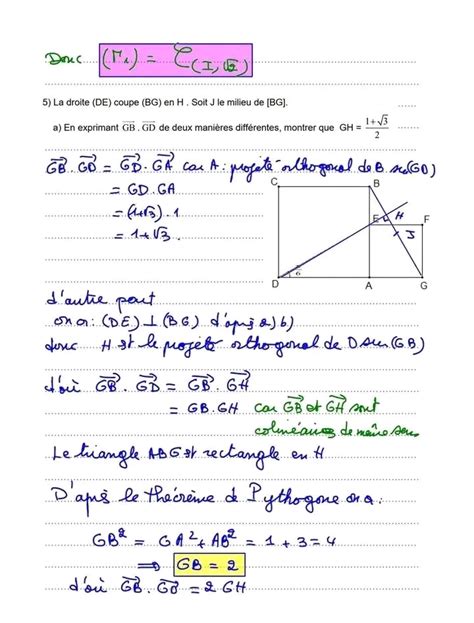 Donc (Γ₁) = C(I,√2)
5) La droite (DE) coupe (BG) en H . Soit J le milieu de [BG].
a) En exprimant GB . GD de deux manières différentes, montrer que GH = (1+√3)/2
GB . GD = GD . GA car A : projeté orthogonal de B sur (GD)
= GD . GA
= (1+√3) . 1
= 1+√3
C B
E H F
J
π/6
D A G
d'autre part
on a : (DE) ⊥ (BG) d'après 2) b)
donc H est le projeté orthogonal de D sur (GB)
d'où GB . GD = GB . GH
= GB . GH car GB et GH sont
colinéaires de même sens
Le triangle ABG est rectangle en H
D'après le théorème de Pythogone on a :
GB² = GA² + AB² = 1 + 3 = 4
⇒ GB = 2
d'où GB . GD = 2 GH